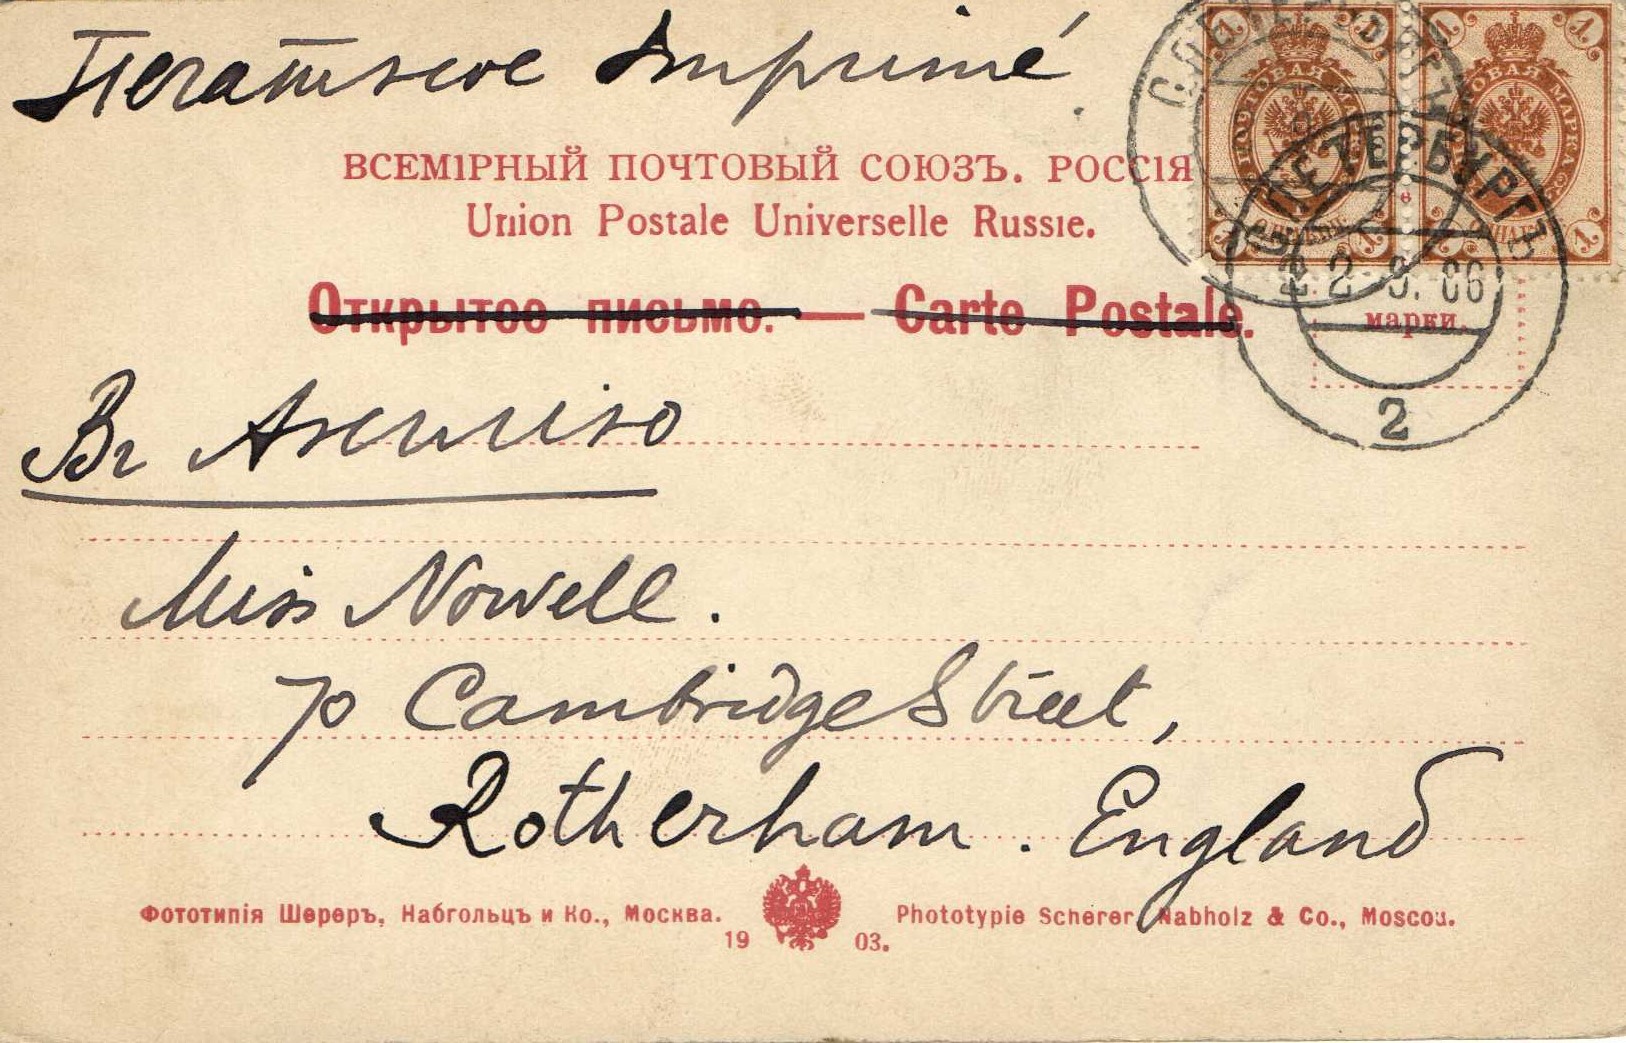 Печатное Imprimé
ВСЕМІРНЫЙ ПОЧТОВЫЙ СОЮЗЪ. РОССІЯ
Union Postale Universelle Russie.
Открытое письмо. — Carte Postale.
марки.
Въ Англію
Miss Nowell.
70 Cambridge Street,
Rotherham. England
Фототипія Шереръ, Набгольцъ и Ко., Москва. Phototypie Scherer, Nabholz & Co., Moscou.
19 03.
1 1 1 1
ПОЧТОВАЯ МАРКА
ПОЧТОВАЯ МАРКА
1 1 1 1
С.ПЕТЕРБУРГЪ
С ПЕТЕРБУРГЪ
2.9.06
2